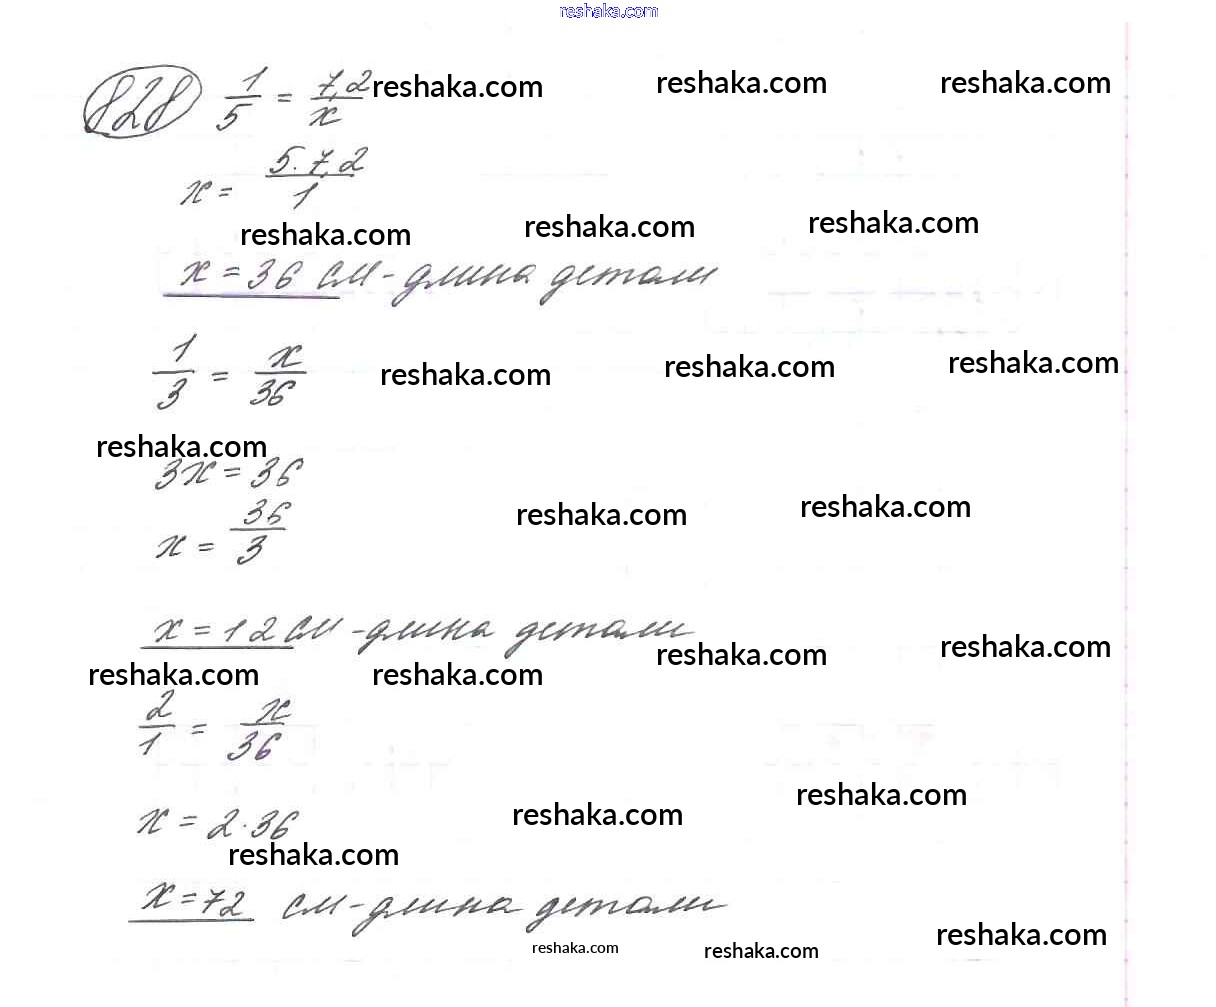 reshaka.com
828 1/5 = 7,2/x reshaka.com reshaka.com reshaka.com
x = 5·7,2/1
reshaka.com reshaka.com reshaka.com
x = 36 см - длина детали
1/3 = x/36 reshaka.com reshaka.com reshaka.com
reshaka.com
3x = 36
x = 36/3 reshaka.com reshaka.com
x = 12 см - длина детали
reshaka.com reshaka.com reshaka.com reshaka.com
2/1 = x/36
x = 2·36 reshaka.com reshaka.com
reshaka.com
x = 72 см - длина детали
reshaka.com reshaka.com reshaka.com